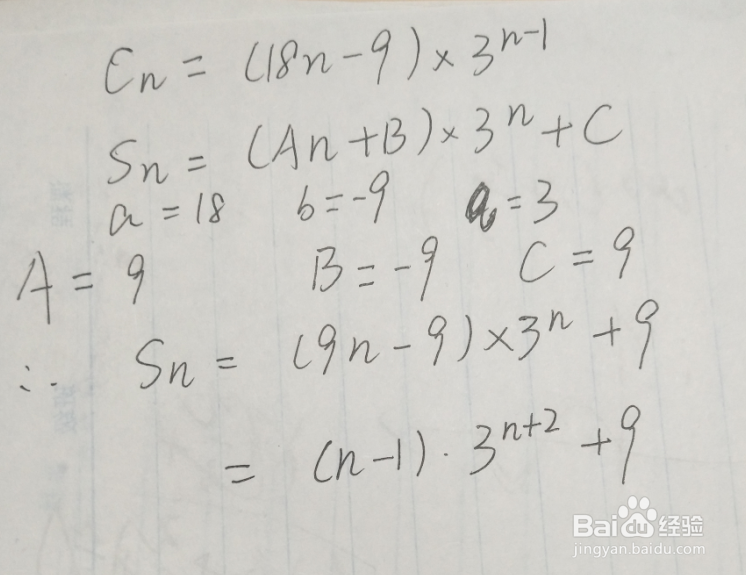 Cn = (18n-9)×3^{n-1}
Sn = (An+B)×3^n+C
a=18 b=-9 q=3
A=9 B=-9 C=9
∴ Sn = (9n-9)×3^n+9
= (n-1)·3^{n+2}+9
Baidu经验
jingyan.baidu.com